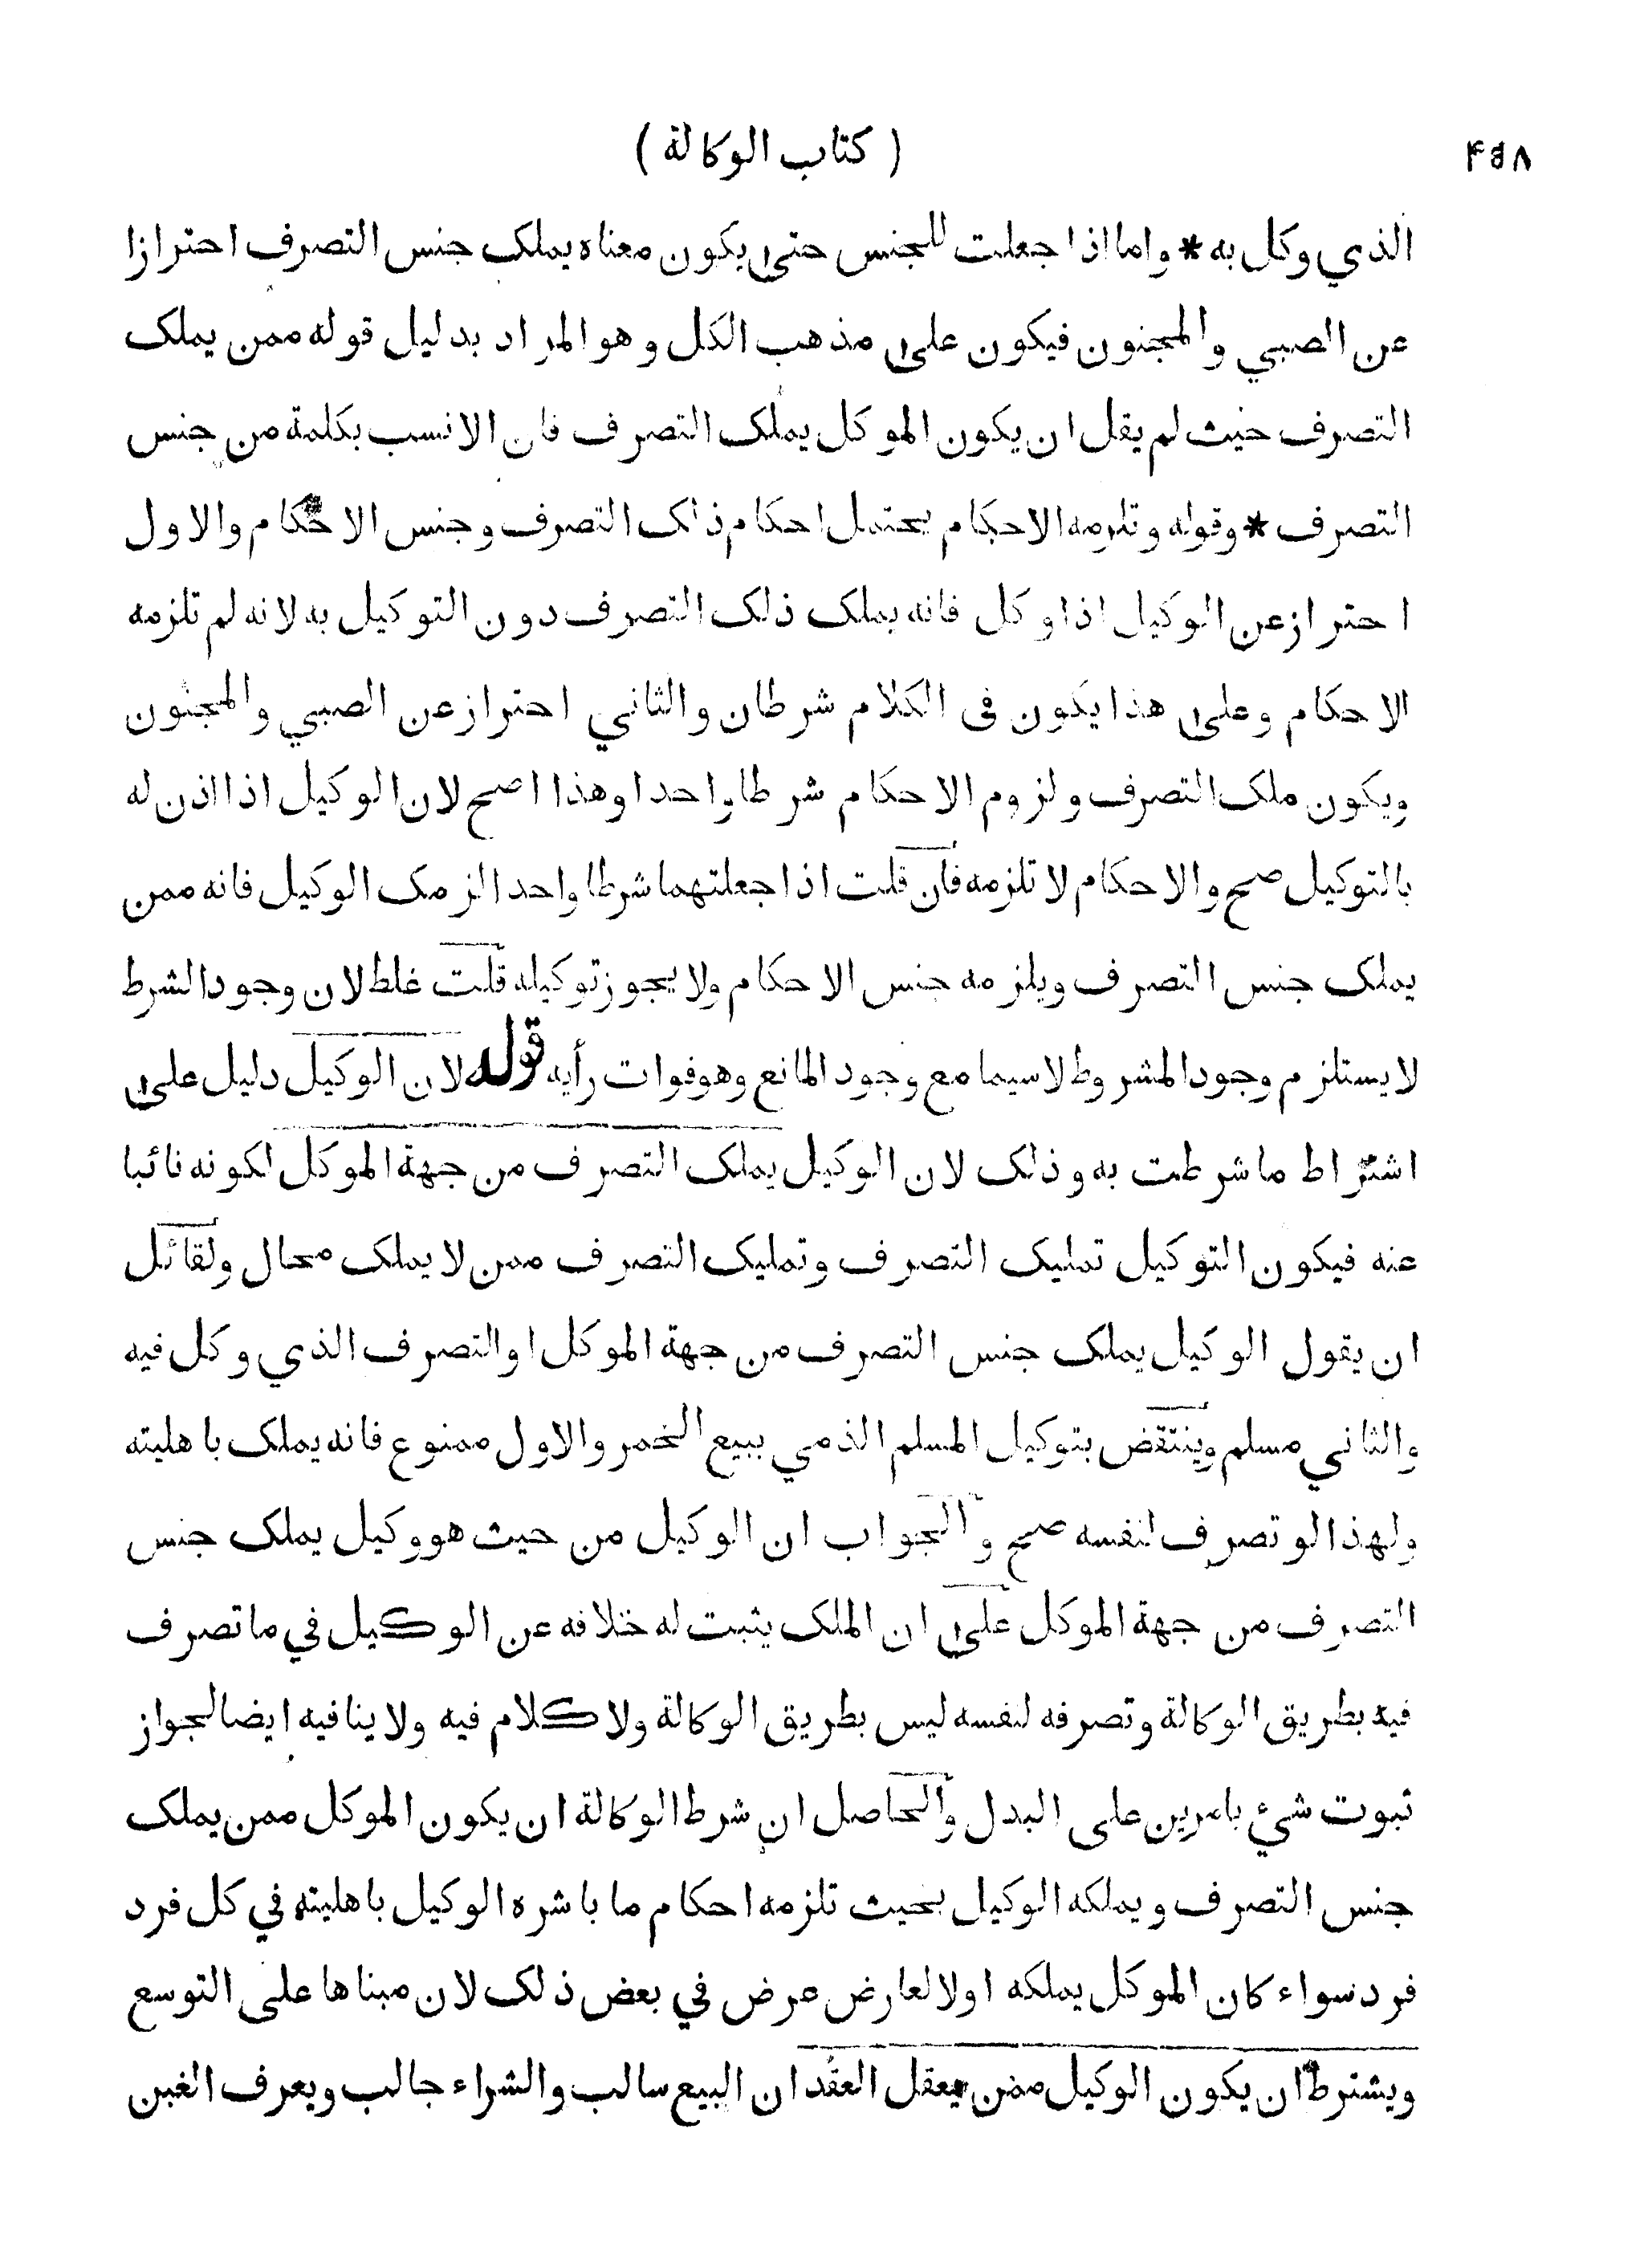 ۴۵۸
( كتاب الوكالة )
الذي وكل به * واما اذا جعلت للجنس حتى يكون معناه يملك جنس التصرف احترازا
عن الصبي والمجنون فيكون على مذهب الكل وهو المراد بدليل قوله ممن يملك
التصرف حيث لم يقل ان يكون الموكل يملك التصرف فان الانسب بكلمة من جنس
التصرف * وقوله وتلزمه الاحكام يحتمل احكام ذلك التصرف وجنس الاحكام والاول
احتراز عن الوكيل اذا وكل فانه يملك ذلك التصرف دون التوكيل به لانه لم تلزمه
الاحكام وعلى هذا يكون فى الكلام شرطان والثاني احتراز عن الصبي والمجنون
ويكون ملك التصرف ولزوم الاحكام شرطا واحدا وهذا اصح لان الوكيل اذا اذن له
بالتوكيل صح والاحكام لا تلزمه فان قلت اذا جعلتهما شرطا واحد الزمك الوكيل فانه ممن
يملك جنس التصرف ويلزمه جنس الاحكام ولا يجوز توكيله قلت غلط لان وجود الشرط
لا يستلزم وجود المشروط لاسيما مع وجود المانع وهو فوات رأيه قوله لان الوكيل دليل على
اشتراط ما شرطت به وذلك لان الوكيل يملك التصرف من جهة الموكل لكونه نائبا
عنه فيكون التوكيل تمليك التصرف وتمليك التصرف ممن لا يملك محال ولقائل
ان يقول الوكيل يملك جنس التصرف من جهة الموكل او التصرف الذي وكل فيه
والثاني مسلم وينتقض بتوكيل المسلم الذمي ببيع الخمر والاول ممنوع فانه يملك باهليته
ولهذا لو تصرف لنفسه صح والجواب ان الوكيل من حيث هو وكيل يملك جنس
التصرف من جهة الموكل على ان الملك يثبت له خلافه عن الوكيل في ما تصرف
فيه بطريق الوكالة وتصرفه لنفسه ليس بطريق الوكالة ولا كلام فيه ولا ينافيه ايضا لجواز
ثبوت شيء بامرين على البدل والحاصل ان شرط الوكالة ان يكون الموكل ممن يملك
جنس التصرف ويملكه الوكيل بحيث تلزمه احكام ما باشره الوكيل باهليته في كل فرد
فرد سواء كان الموكل يملكه اولا لعارض عرض في بعض ذلك لان مبناها على التوسع
ويشترط ان يكون الوكيل ممن يعقل العقد ان البيع سالب والشراء جالب ويعرف الغبن